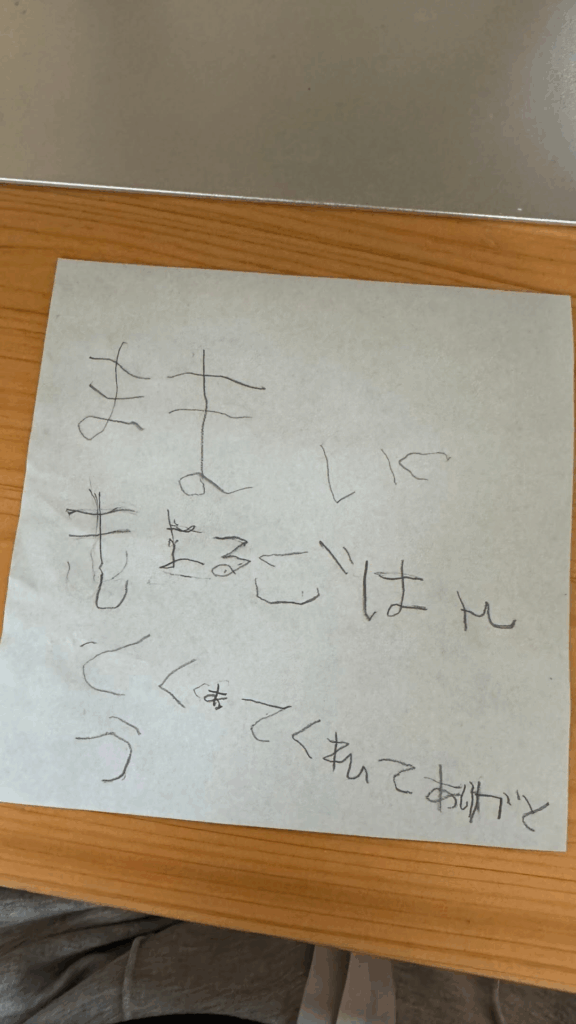 まま いつ
もよるごはん
つくってくれてありがと
う